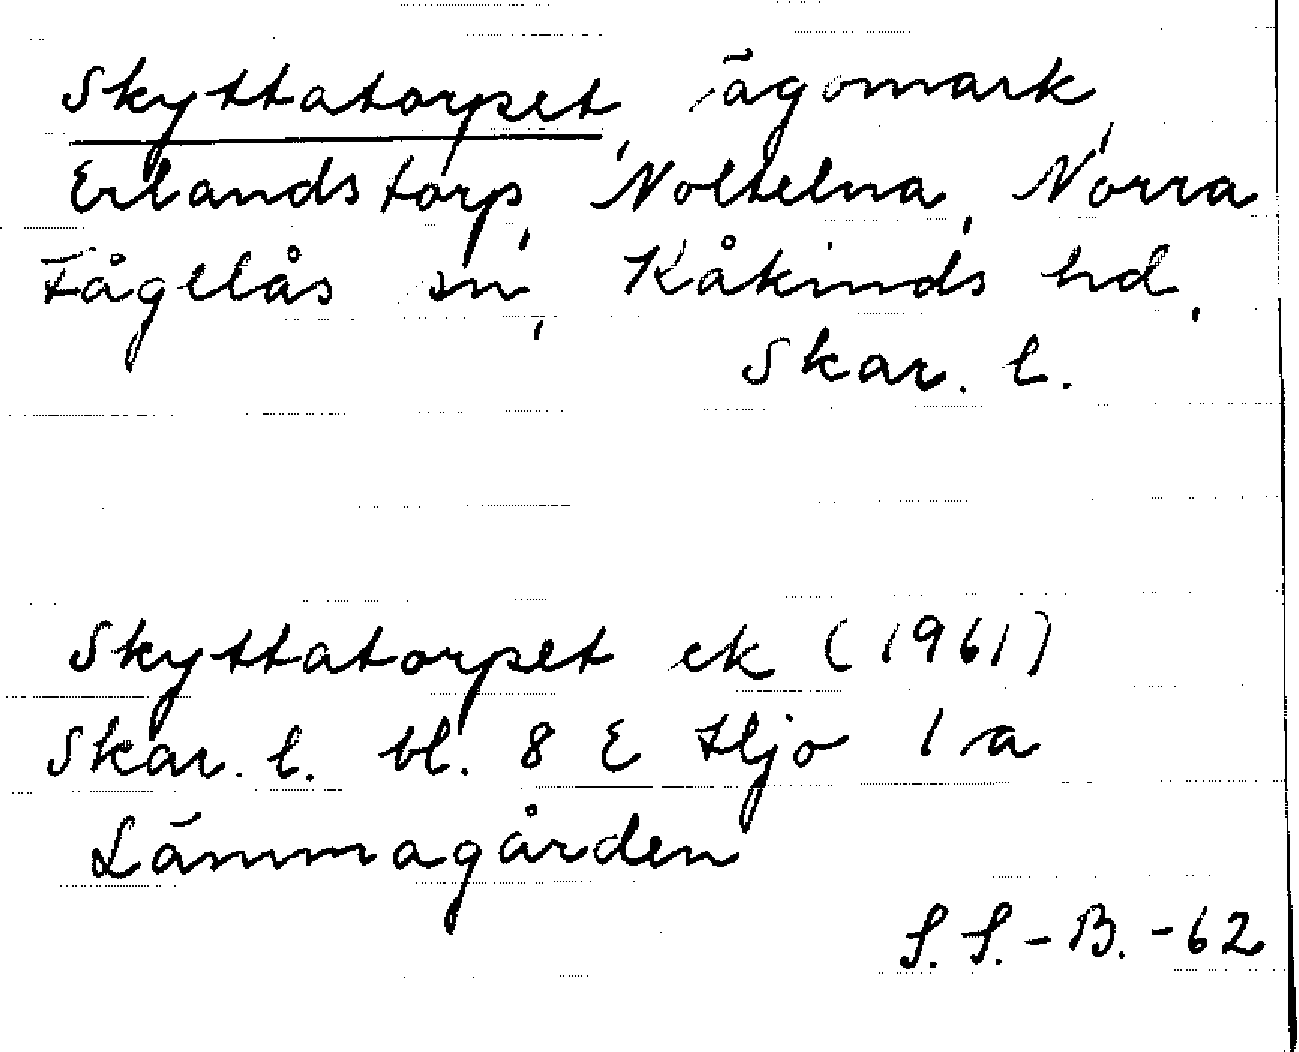 Skyttatorpet, ägomark,
Erlandstorp, Noltelna, Norra
Fågelås sn, Kåkinds hd,
Skar. l.
Skyttatorpet ek (1961)
Skar. l. bl. 8 E Hjo 1 a
Lämmagården
S. S.-B. -62